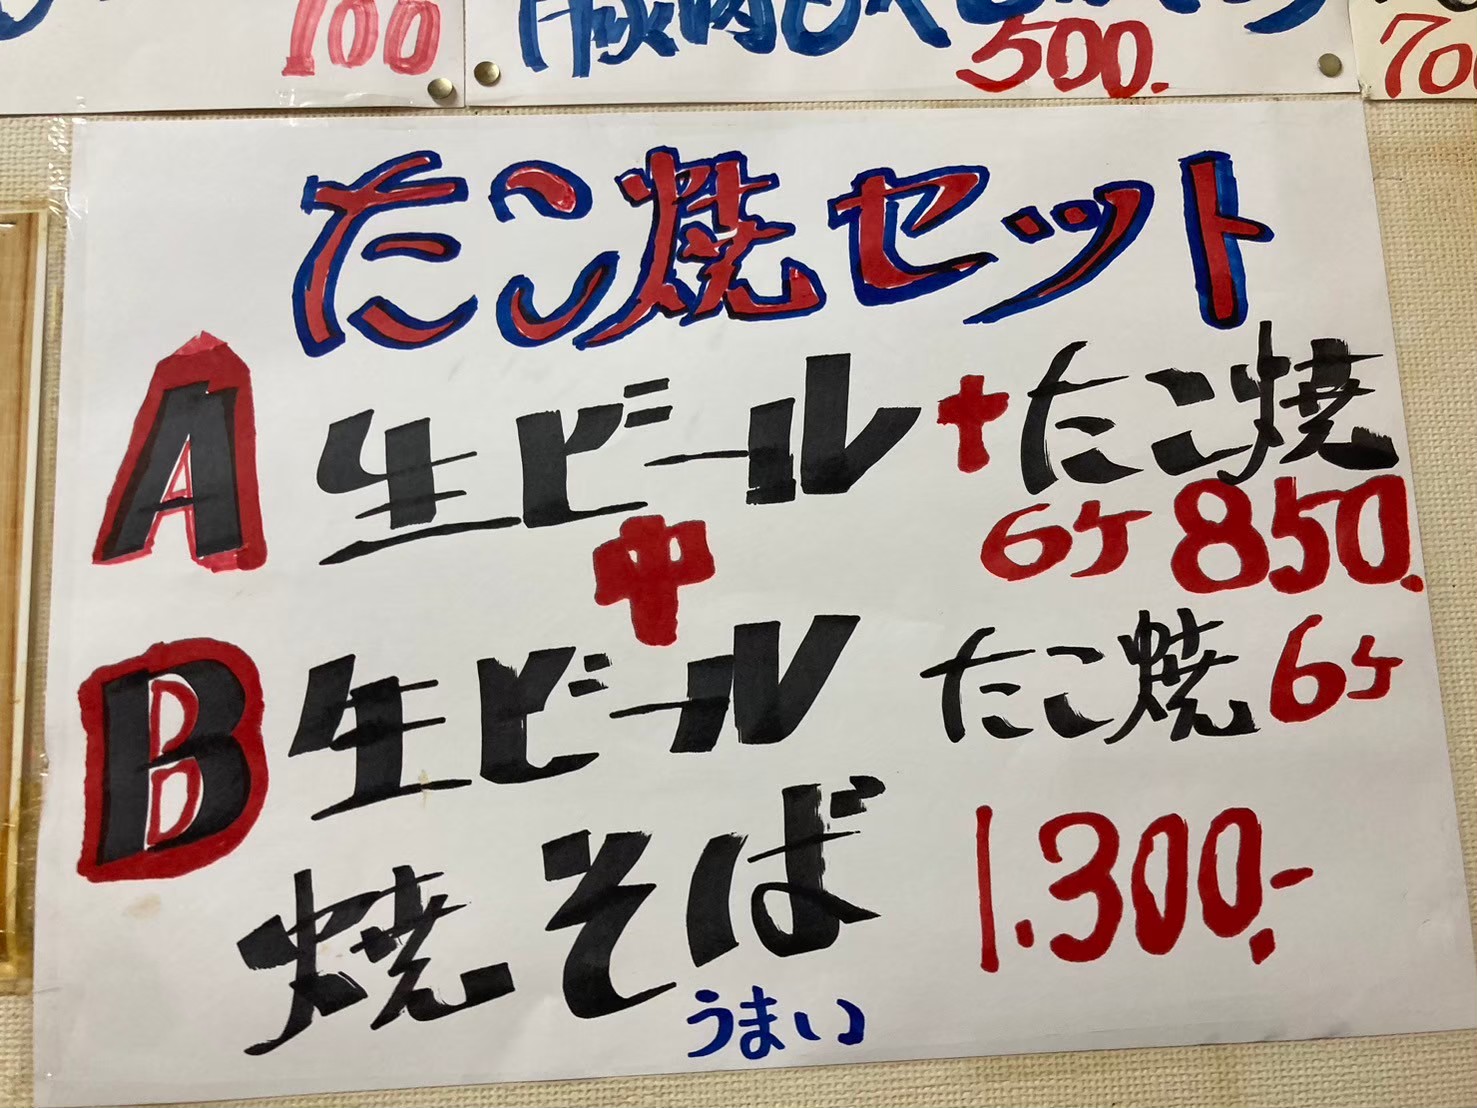 100
500.
たこ焼セット
A 生ビール+たこ焼
6ケ 850.
中
B 生ビール たこ焼 6ケ
焼そば 1.300.-
うまい